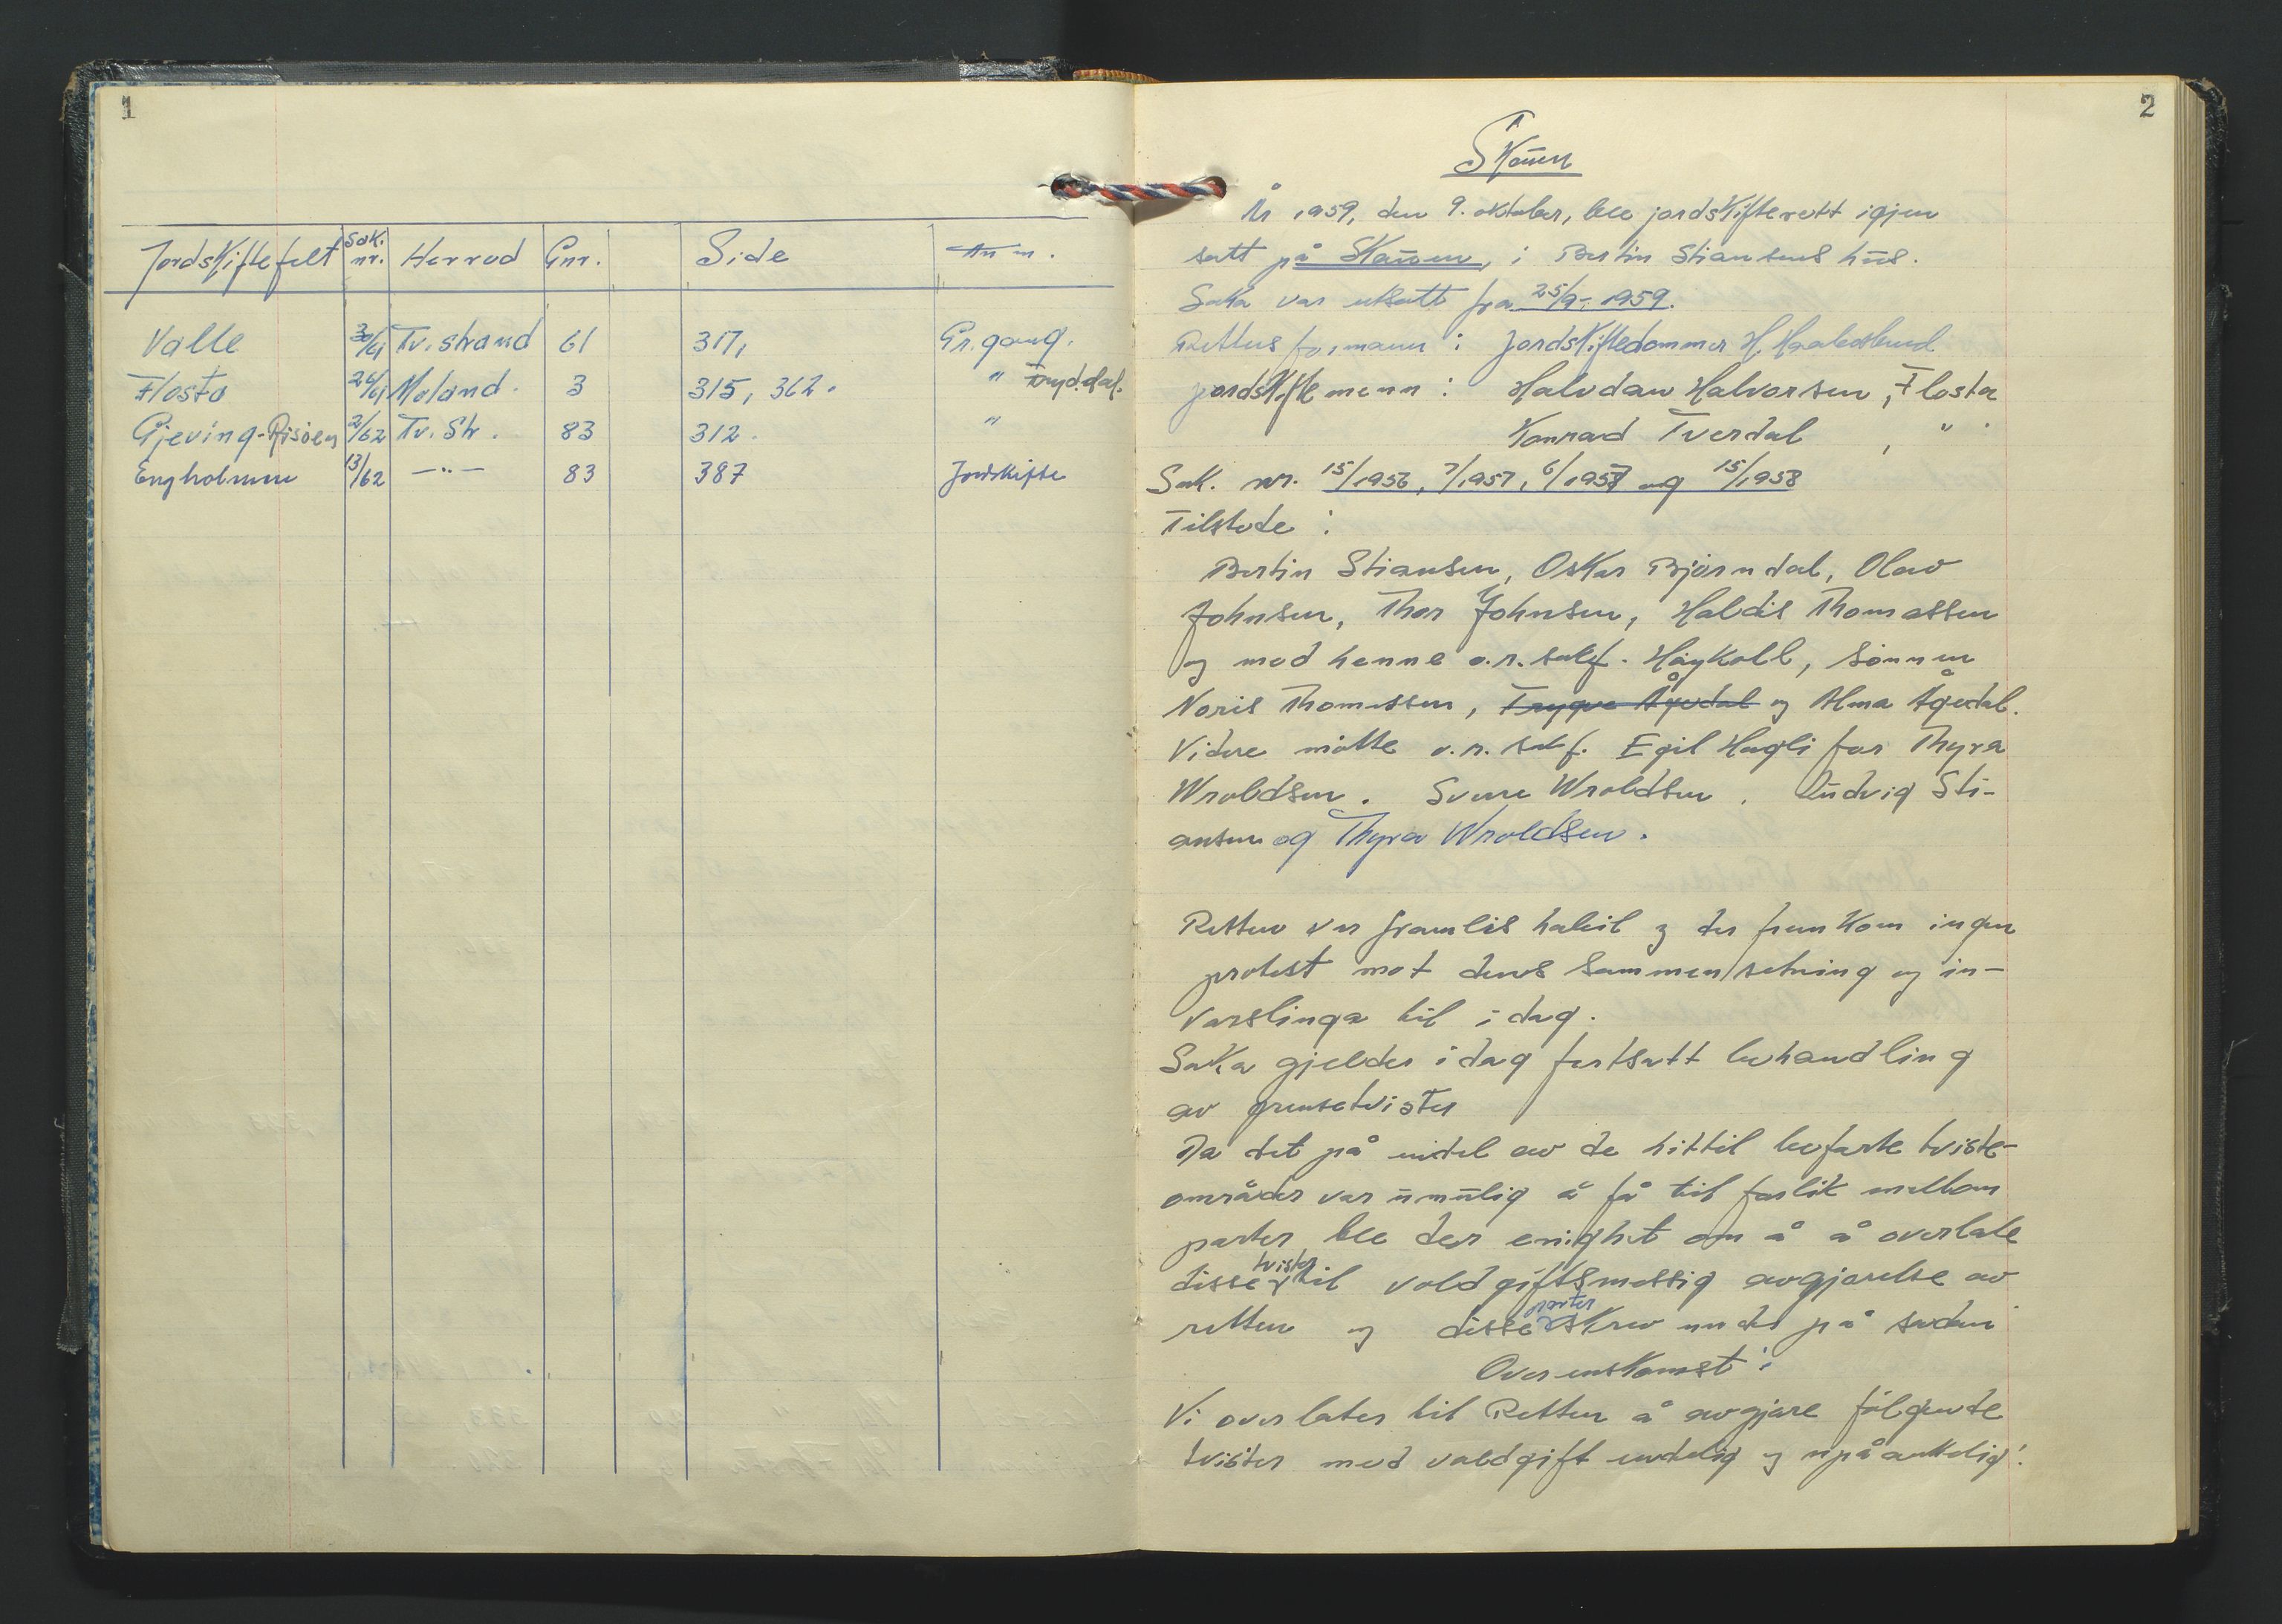 1
Jordskiftefelt Sak. nr. Herred Gnr. Side Anm.
Valle 30/61 Tv.strand 61 317, Gr.gang.
Flosta 26/61 Moland. 3 315, 362. "
Gjeving-Risøen 2/62 Tv. Str. 83 312. "
Engholmen 13/62 —"— 83 387 Jordskifte
2
Skauen
År 1959, den 9. oktober, ble jordskifterett igjen
satt på Skauen, i Bertin Stiansens hus.
Saka var utsatt fra 25/9-1959.
Rettens formann: Jordskiftedommer H.
Jordskiftemenn: Halvdan Halvorsen, Flosta
Konrad Tverdal, "
Sak. nr. 15/1956, 7/1957, 6/1958 og 15/1958
Tilstede:
Bertin Stiansen, Oskar Bjørndal, Olav
Johnsen, Thor Johnsen, Haldis Thomassen
og med henne o.r.sakf. Høykoll, sønnen
Noris Thomassen, Trygve Ågedal og Alma Ågedal.
Videre møtte o.r. sakf. Egil Hagli for Thyra
Wroldsen. Sverre Wroldsen. Ludvig Sti-
ansen og Thyra Wroldsen.
Retten var framleis habil og der framkom ingen
protest mot dens sammensetning og in-
varslinga til i dag.
Saka gjelder i dag fortsatt behandling
av grensetvister
Da det på endel av de hittil befarte tviste-
områder var umulig å få til forlik mellom
parter ble der enighet om å å overlate
disse tvister til voldgiftsmessig avgjørelse av
retten og disse parter skrev under på sådan
Overenskomst:
Vi overlater til Retten å avgjøre følgende
tvister med voldgift endelig og upåankelig: